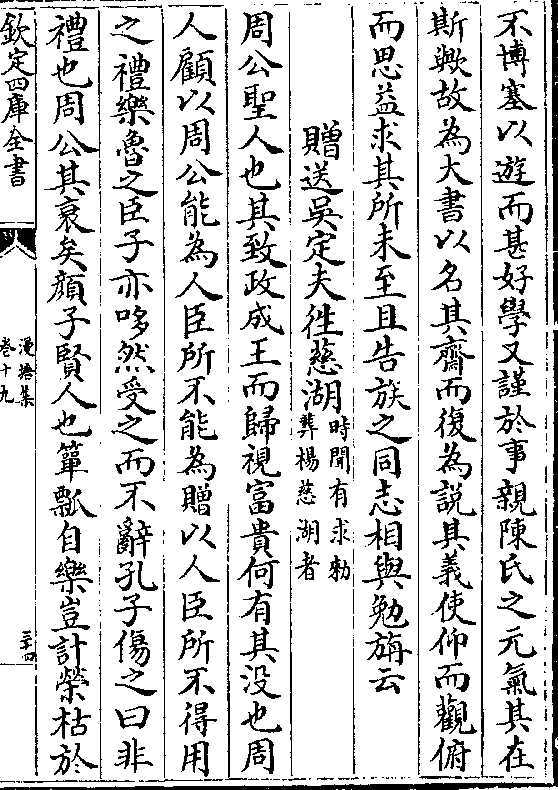 不博塞以遊而甚好學又謹於事親陳氏之元氣其在
斯歟故為大書以名其齋而復為說其義使仰而觀俯
而思益求其所未至且告族之同志相與勉旃云
贈送吳定夫徃慈湖時聞有求勅
葬楊慈湖者
周公聖人也其致政成王而歸視富貴何有其没也周
人顧以周公能為人臣所不能為贈以人臣所不得用
之禮樂魯之臣子亦哆然受之而不辭孔子傷之曰非
禮也周公其衰矣顔子賢人也簞瓢自樂豈計榮枯於
欽定四庫全書
漫塘集
卷十九
三十四